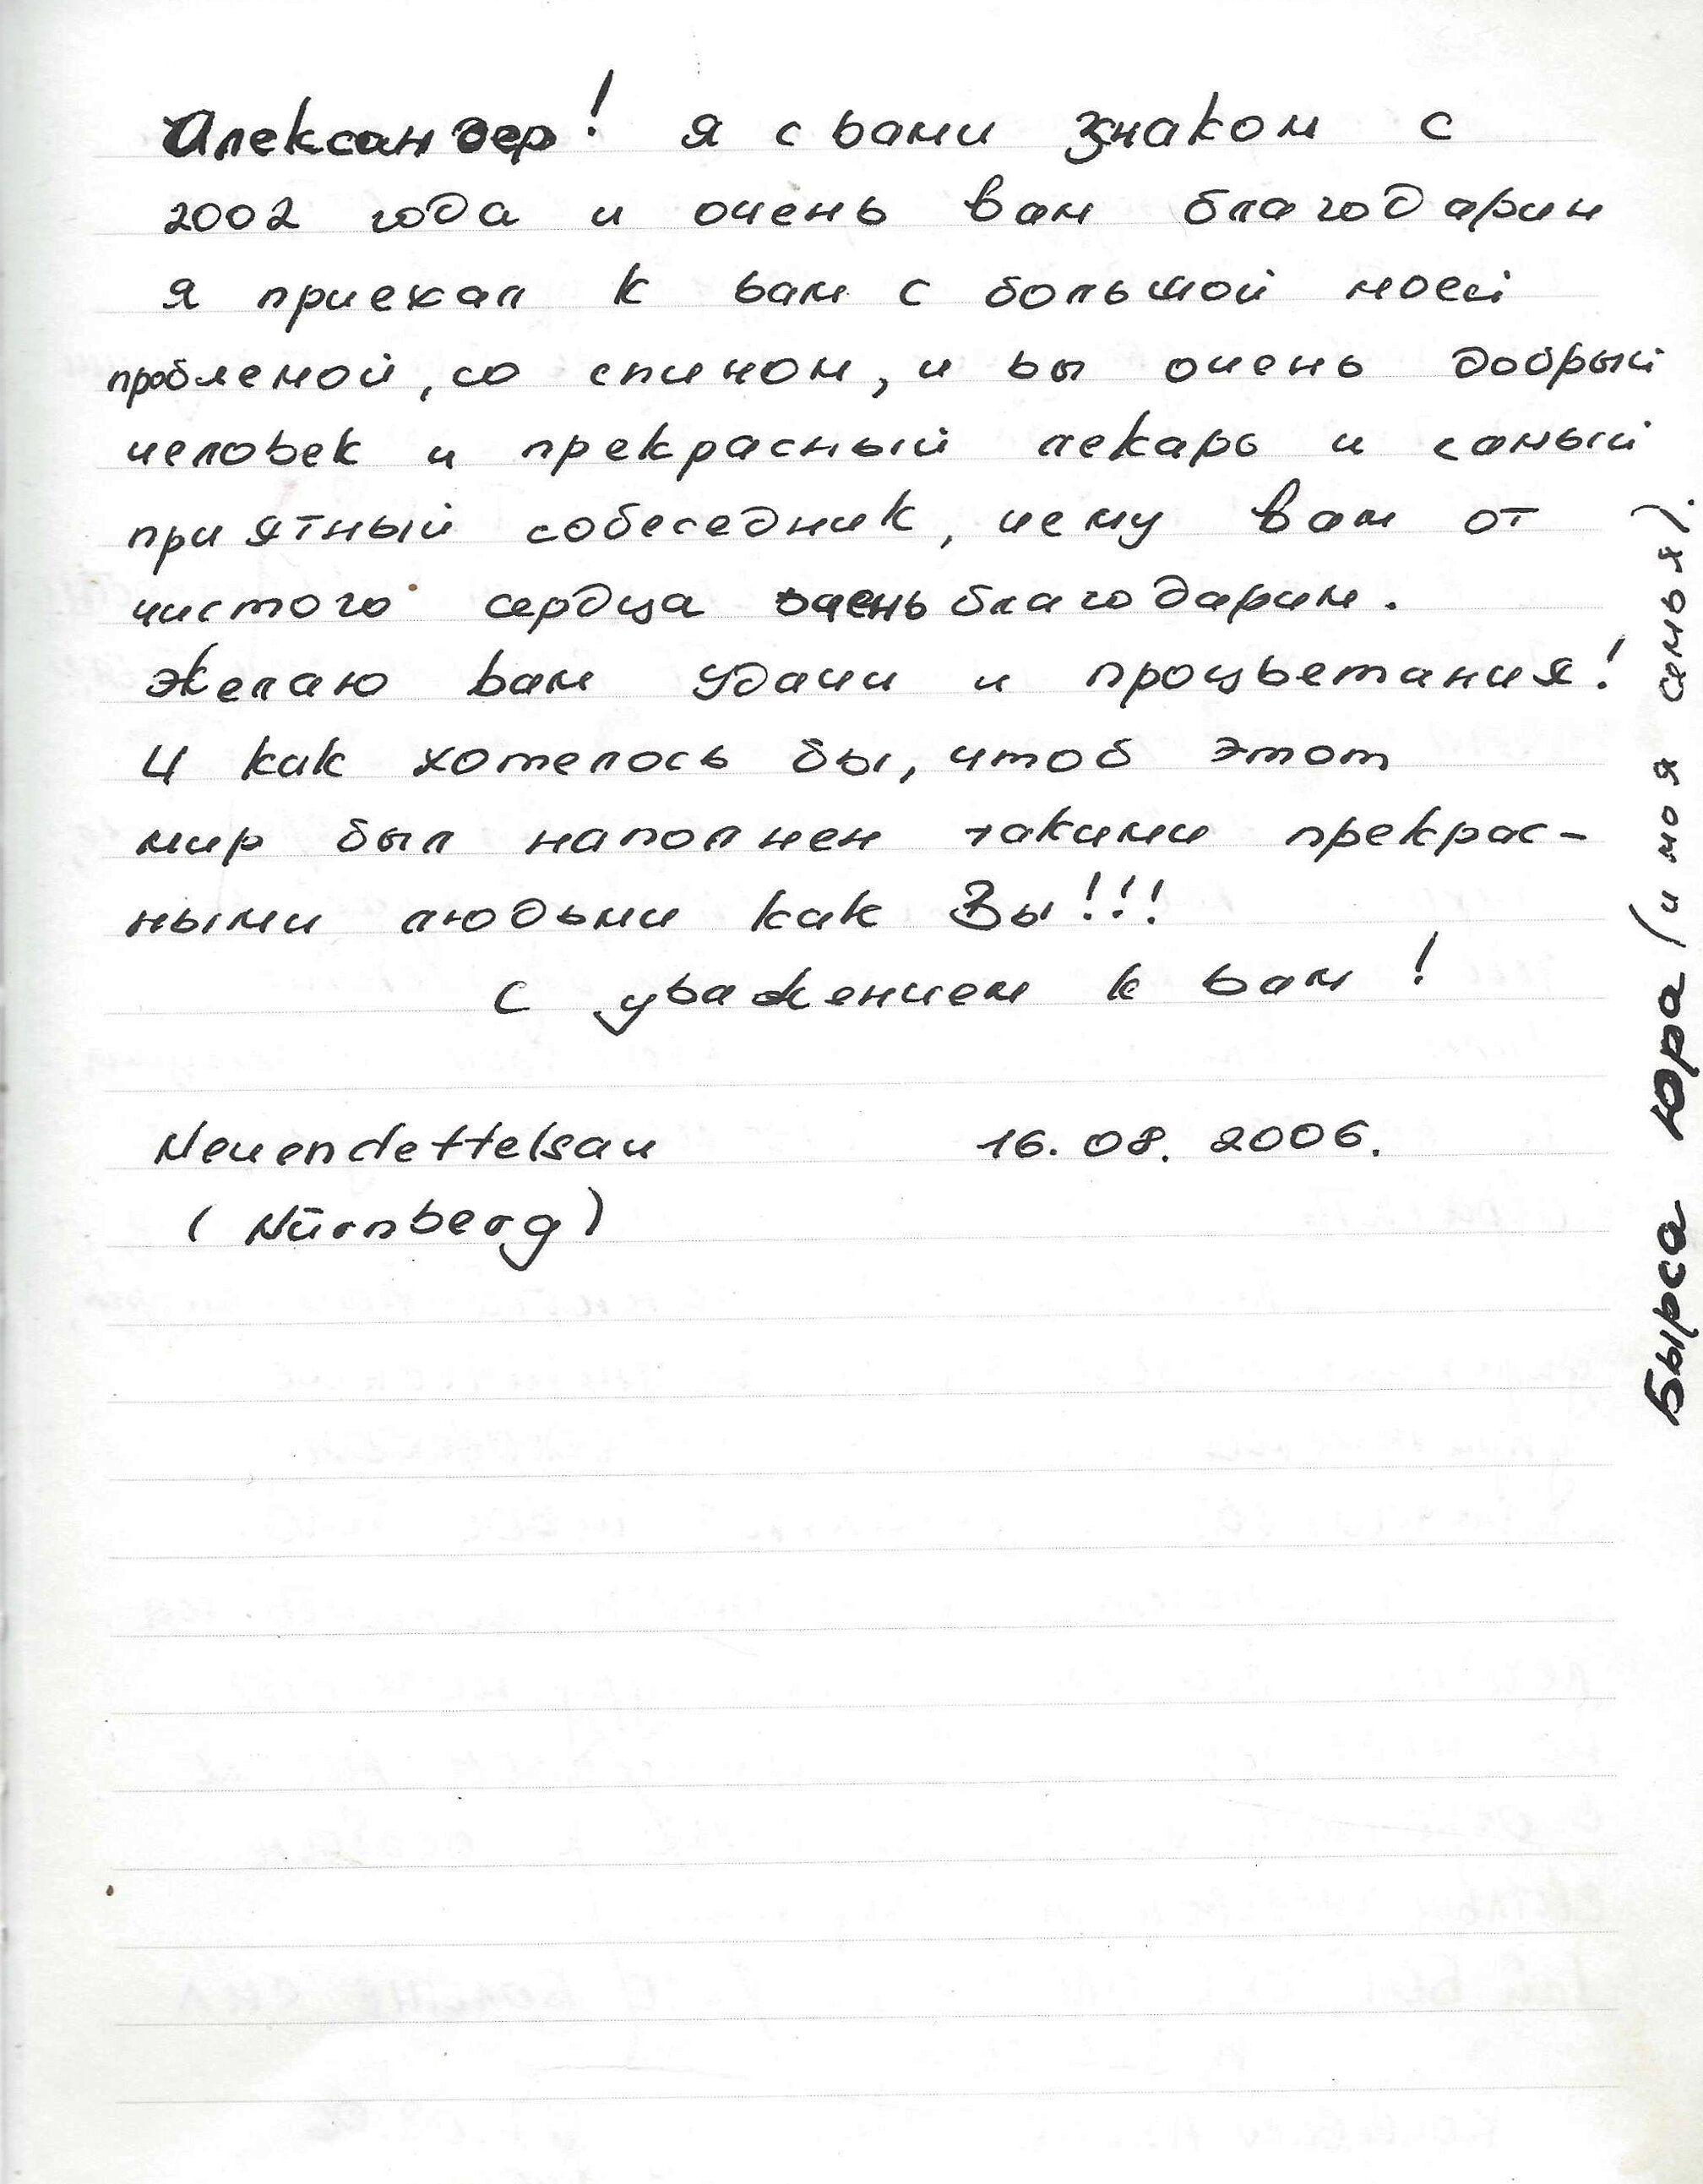 Александер! я с вами знаком с
2002 года и очень вам благодарин
я приехал к вам с большой моей
проблемой, со спином, и вы очень добрый
человек и прекрасный лекарь и самый
приятный собеседник, чему вам от
чистого сердца очень благодарим.
Желаю вам удачи и процветания!
И как хотелось бы, чтоб этот
мир был наполнен такими прекрас-
ными людьми как Вы!!!
С уважением к вам!
Neuendettelsau 16.08.2006.
(Nürnberg)
Бырса Юра (и моя семья).